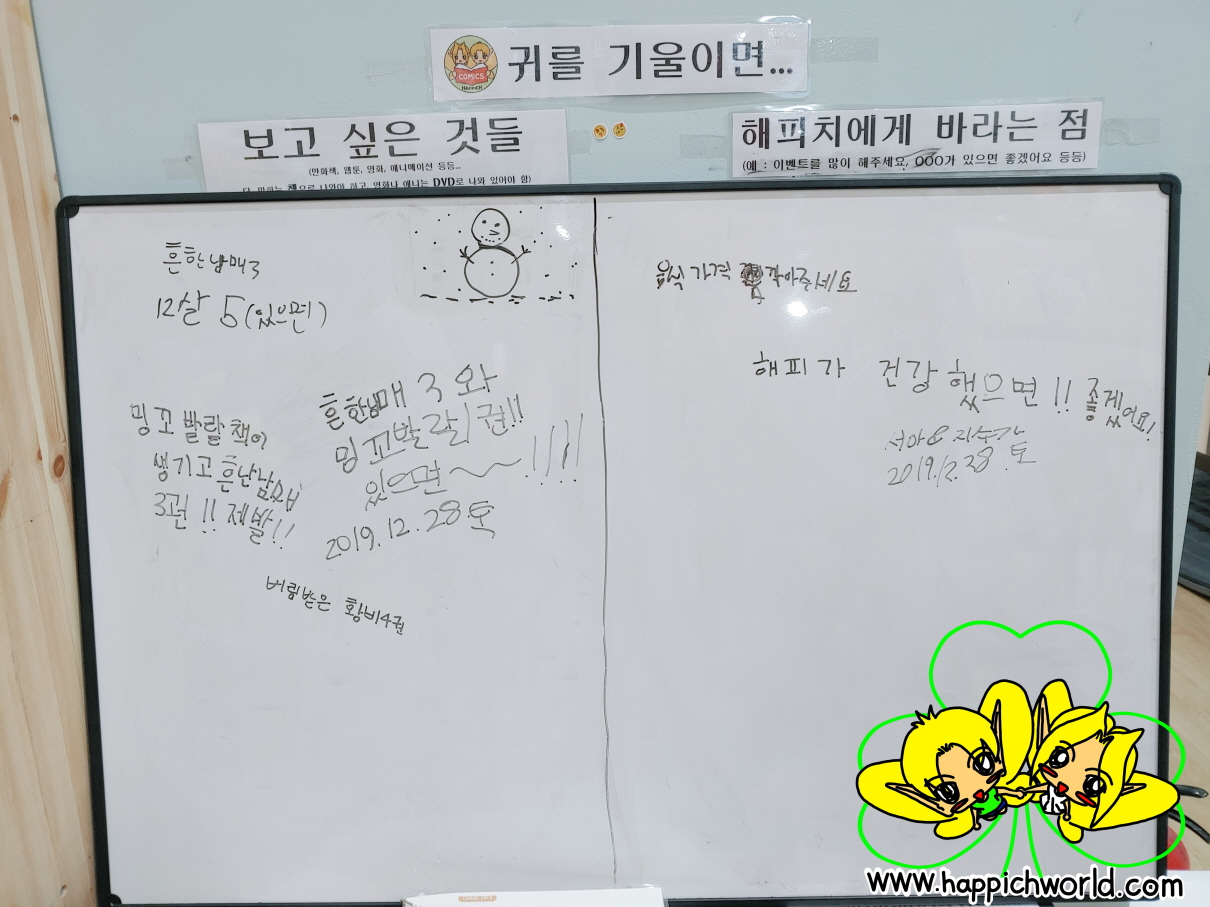 COMICS
HAPPICH
귀를 기울이면...
보고 싶은 것들
(만화책, 웹툰, 영화, 애니메이션 등등...
단, 만화는 책으로 나와야 하고, 영화나 애니는 DVD로 나와 있어야 함)
해피치에게 바라는 점
(예 : 이벤트를 많이 해주세요, OOO가 있으면 좋겠어요 등등)
흔한남매3
12살 5(있으면)
밍꼬발랄 책이
생기고 흔난남매
3권!! 제발!!
흔한남매 3 와
밍꼬발랄1권!!
있으면~~!!!!
2019.12.28.토
버림받은 황비4권
음식 가격 깍아주세요
해피가 건강했으면!! 좋겠어요!
2019.12.28.토
www.happichworld.com